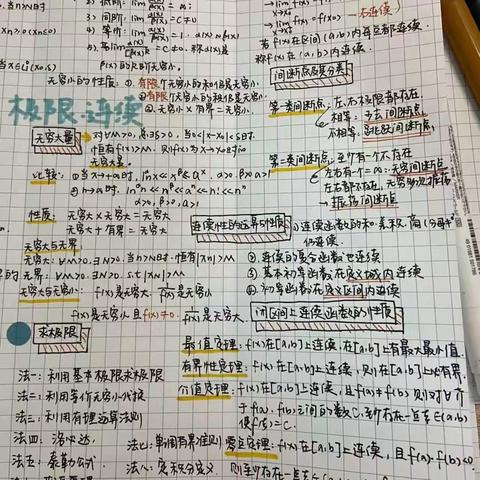 当n>N时
3) 同阶: lim α(x)/β(x) = C ≠ 0
4) 等价: lim α(x)/β(x) = 1. α(x) ~ β(x)
5) 若 lim α(x)/[β(x)]^k = C ≠ 0. 称 α(x) 是
β(x) 的 k 阶无穷小.
无穷小的性质: ①. 有限个无穷小的和仍是无穷小.
②有限个无穷小的积仍是无穷小
③. 无穷小 × 有界 = 无穷小.
极限.连续
无穷大量
对∀M>0, ∃δ>0, 当0<|x-x₀|<δ时.
恒有f(x)>M. 则f(x)为x→x₀时的
无穷大量.
比较: ①当x→+∞时,
②n→∞时.
α>0, β>0, a>1
性质: 无穷大 × 无穷大 = 无穷大
无穷大 + 有界 = 无穷大
无穷大与无界
无穷大: ∀M>0. ∃N>0. 当n>N时. 恒有|xn|>M
无界: ∀M>0. ∃N>0. s.t |xN|>M
无穷大与无穷小: f(x)是无穷大. 1/f(x) 是无穷小
f(x)是无穷小且f(x)≠0. 1/f(x) 是无穷大.
求极限
法一: 利用基本极限求极限
法二: 利用等价无穷小代换
法三: 利用有理运算法则
法四: 洛必达.
法五: 泰勒公式.
法七: 单调有界准则
法八: 定积分定义.
不连续
若f(x)在区间(a,b)内每点都连续.
称f(x)在(a,b)内连续.
间断点及其分类
第一类间断点: 左.右极限都存在
相等: 可去间断点.
不相等: 跳跃间断点
第二类间断点: 至少有一个不存在
左右有一个=∞: 无穷间断点
左右都不存在. 无穷多次振荡
→ 振荡间断点
连续性的运算与性质
①连续函数的和.差.积.商(分母≠0)
仍连续.
②连续的复合函数也连续
③基本初等函数在定义域内连续
④初等函数在定义区间内连续
闭区间上连续函数的性质
最值定理: f(x)在[a,b]上连续, 在[a,b]上有最大最小值.
有界性定理: f(x)在[a,b]上连续, 则在[a,b]上必有界.
介值定理: f(x)在[a,b]上连续, 且f(a)≠f(b) 则对介
于f(a). f(b)之间的数C, 至少存在一点ξ∈(a,b)
使f(ξ)=C.
零点定理: f(x)在[a,b]上连续, 且f(a)·f(b)<0
则至少存在一点ξ∈(a